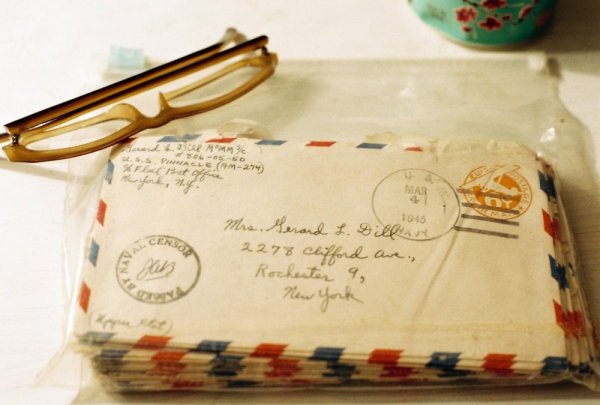 Gerard L. Dill MoMM 3/c
# 806-05-50
U.S.S. PINNACLE (AM-274)
c/o Fleet Post Office
New York, N.Y.
U.S.
MAR
41
1945
NAVY
Mrs. Gerard L. Dill
2278 Clifford Ave.,
Rochester 9,
New York
PASSED BY NAVAL CENSOR